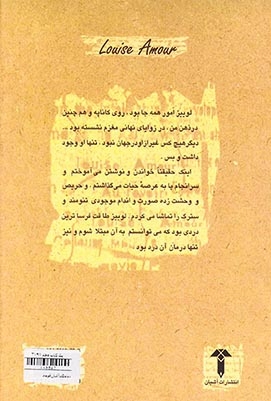 Louise Amour
لوییز آمور همه جا بود، روی کاناپه و هم چنین
در ذهن من، در زوایای نهانی مغزم نشسته بود ...
دیگر هیچ کس غیر از او در جهان نبود، تنها او وجود
داشت و بس.
اینک حقیقتاً خواندن و نوشتن می آموختم و
سرانجام پا به عرصهٔ حیات می‌گذاشتم، و حریص
و وحشت زده صورت و اندام موجودی تنومند و
سترگ را تماشا می کردم. لوییز طاقت فرسا ترین
دردی بود که می توانستم به آن مبتلا شوم و نیز
تنها درمان آن درد بود.
انتشارات آشیان